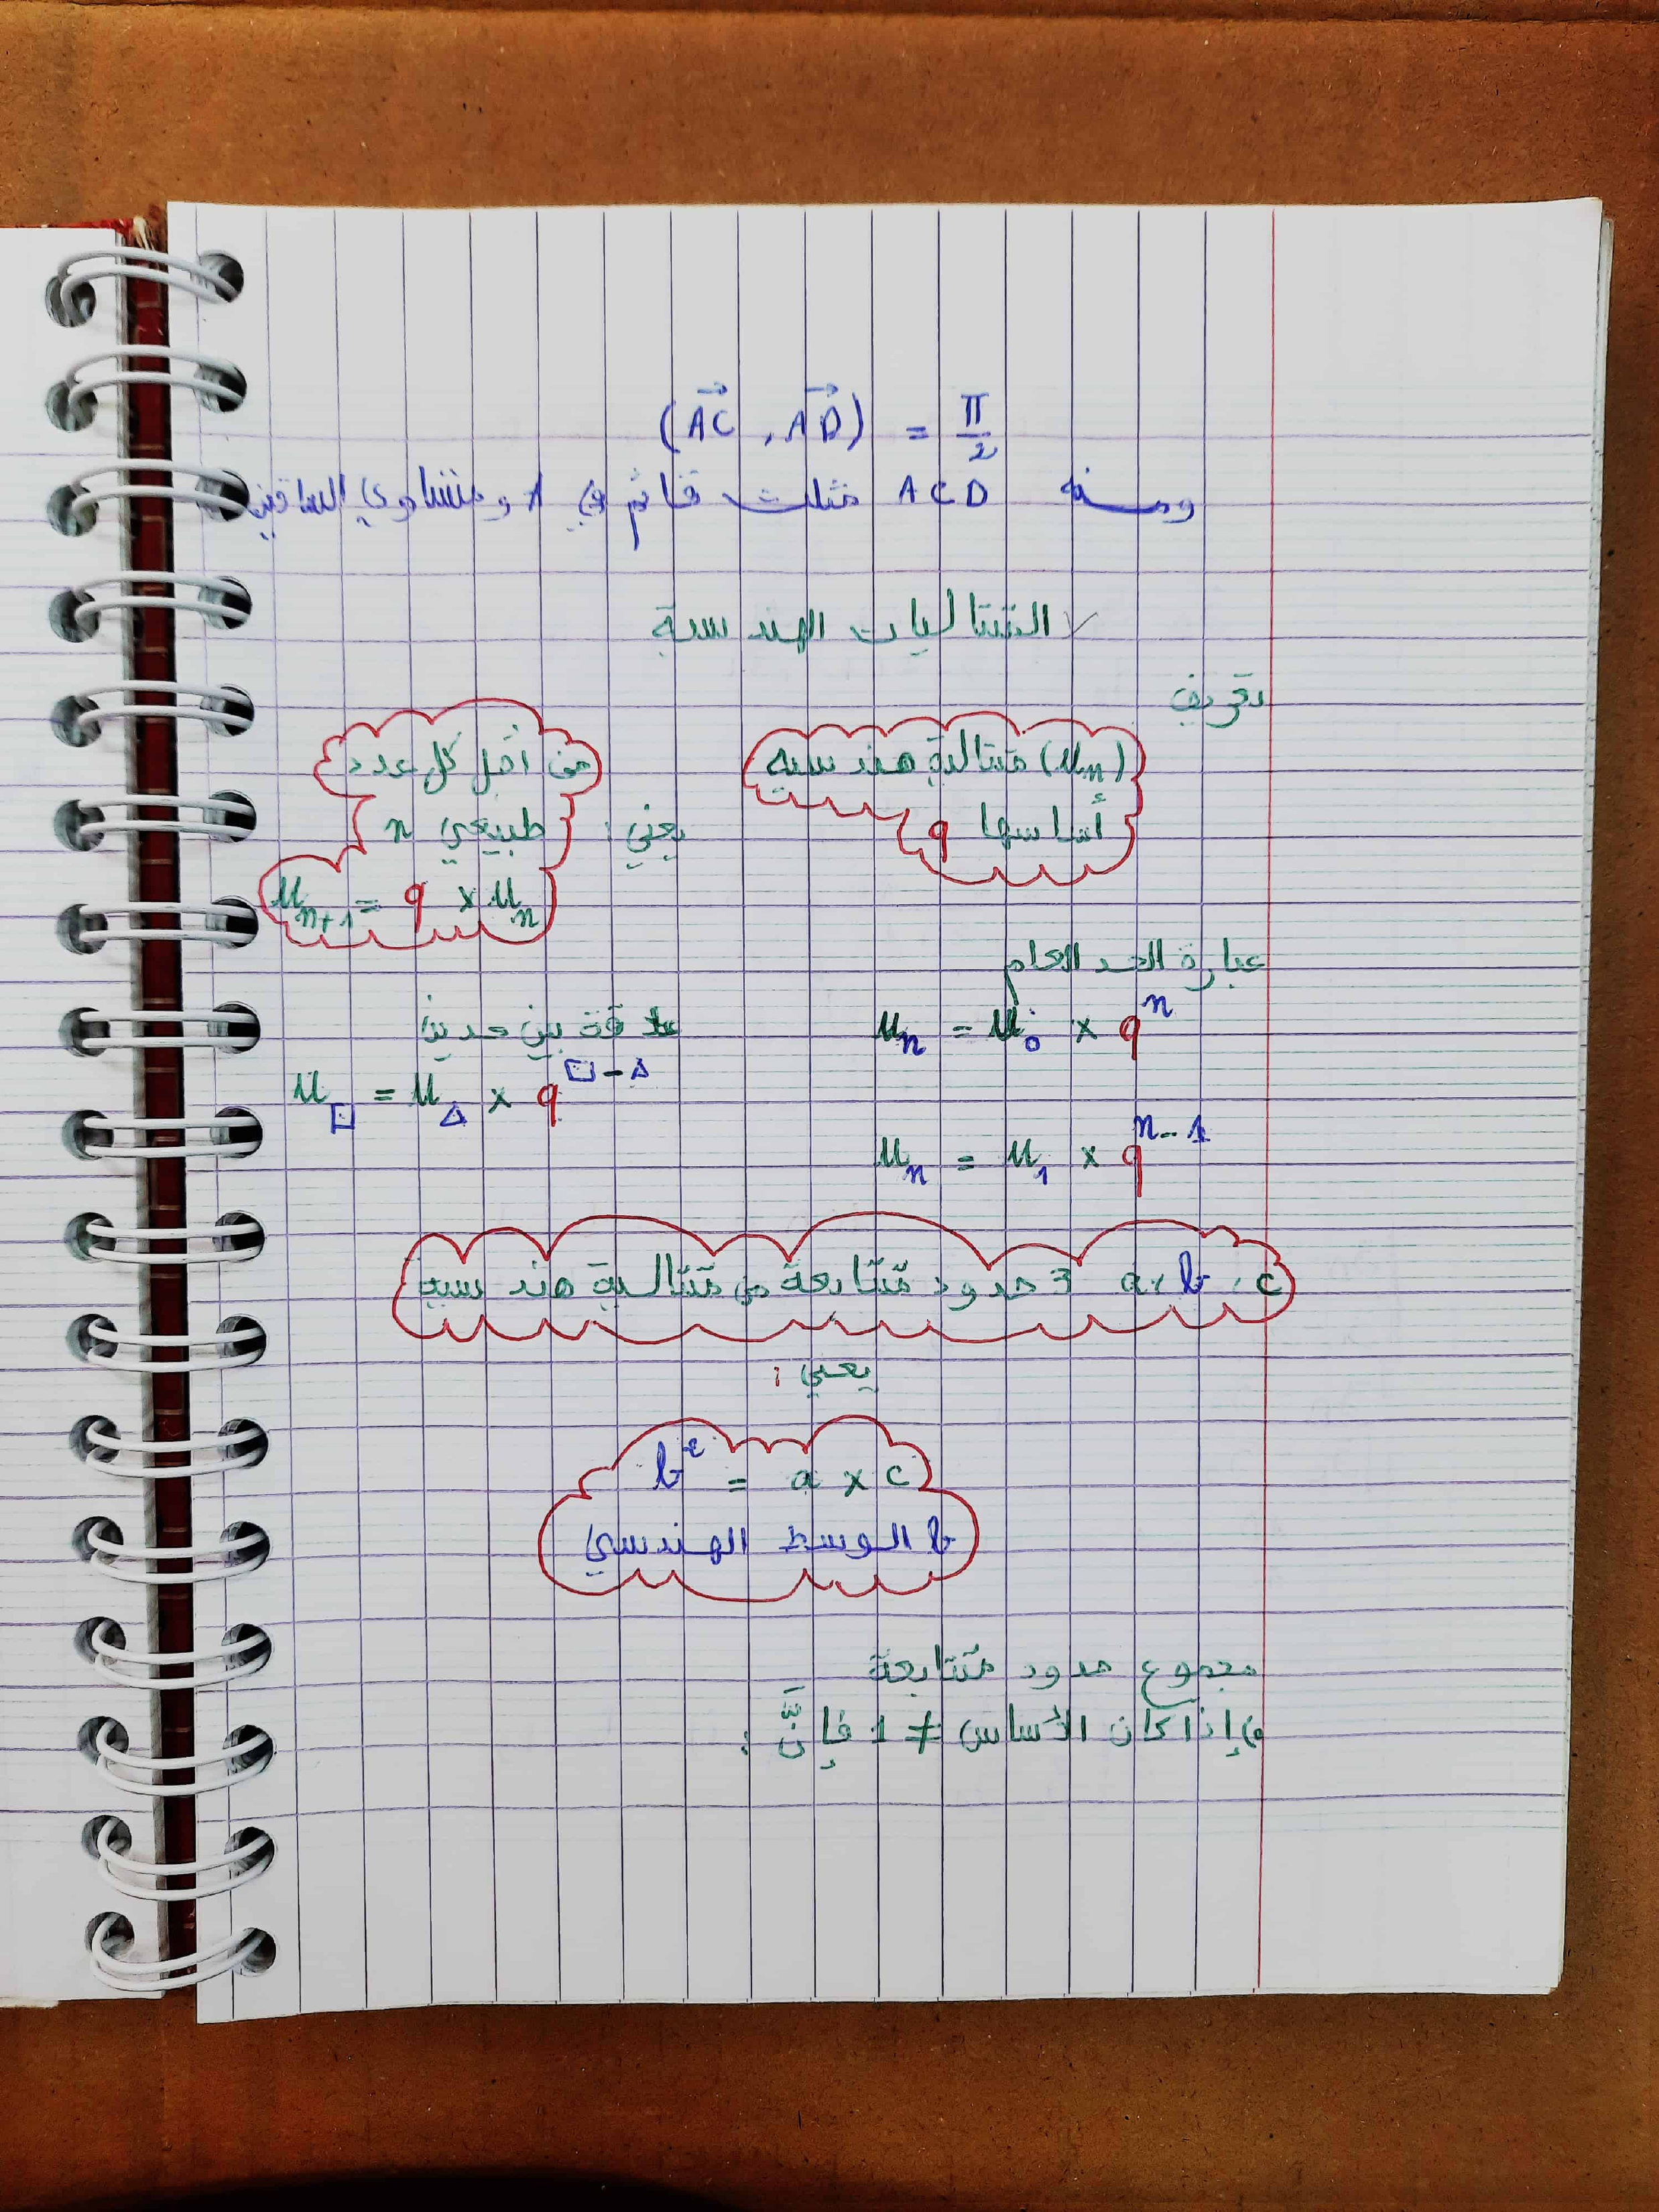 (AC⃗ , AD⃗) = π/2
ومنه ACD مثلث قائم في A ومتساوي الساقين
المتتاليات الهندسية
تعريف
(Uₙ) متتالية هندسية
أساسها q
يعني :
من أجل كل عدد
طبيعي n
Uₙ₊₁ = q × Uₙ
عبارة الحد العام
Uₙ = U₀ × qⁿ
Uₙ = U₁ × qⁿ⁻¹
علاقة بين حدين
U□ = U△ × q^(□-△)
a, b, c 3 حدود متتابعة من متتالية هندسية
يعني :
b² = a × c
b الوسط الهندسي
مجموع حدود متتابعة
إذا كان الأساس ≠ 1 فإنَّ :